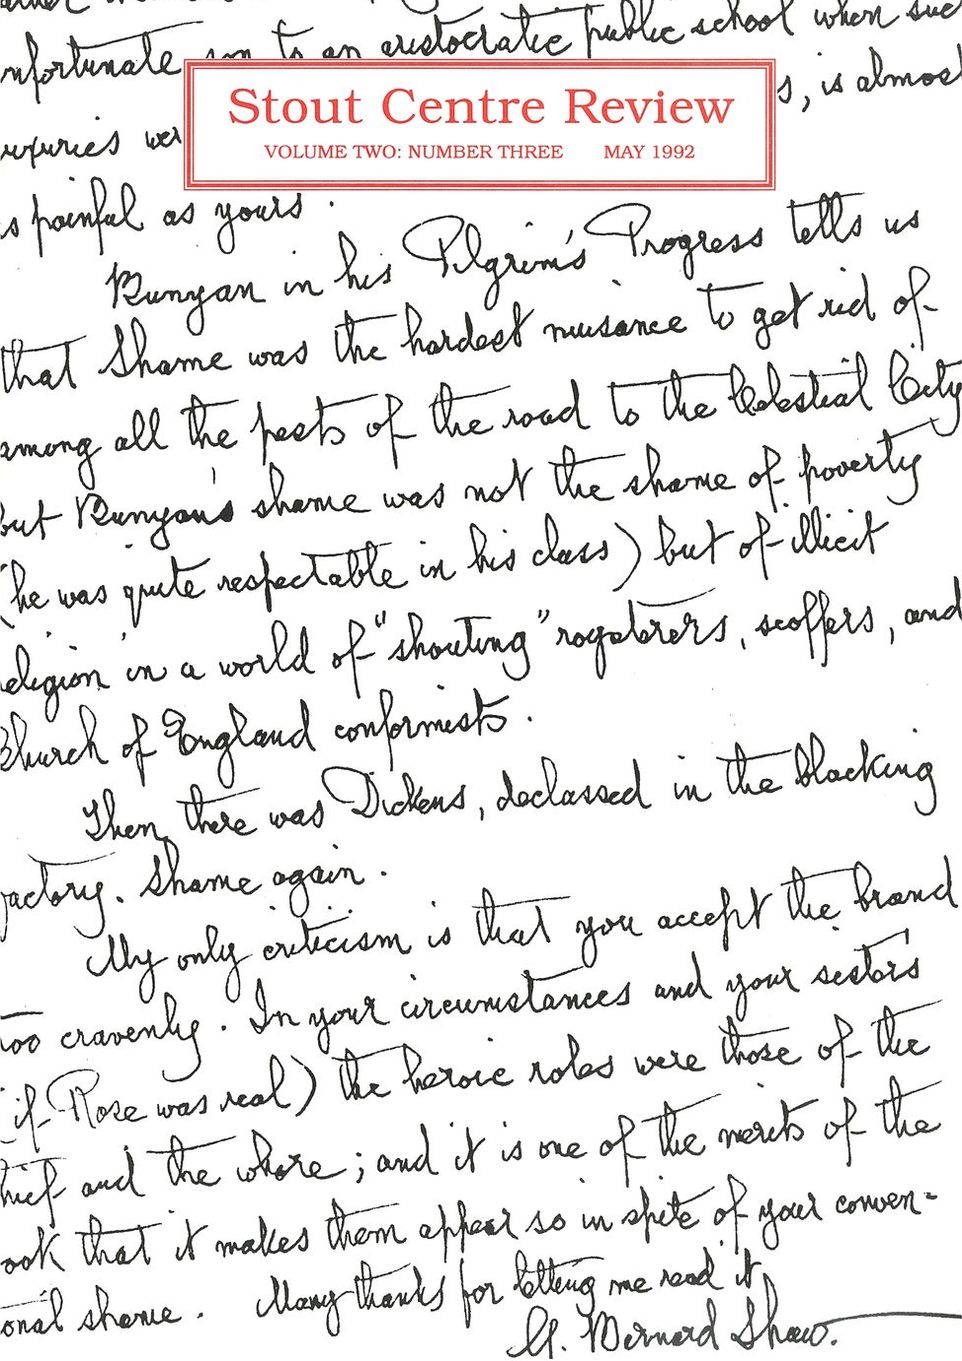 nfortunate son to an aristocratic public school when suc
Stout Centre Review
VOLUME TWO: NUMBER THREE MAY 1992
uxuries wer s, is almost
s painful as yours.
Bunyan in his Pilgrim's Progress tells us
that Shame was the hardest nuisance to get rid of
among all the pests of the road to the Celestial City
but Bunyan's shame was not the shame of poverty
(he was quite respectable in his class) but of illicit
eligion in a world of "shouting" roysterers, scoffers, and
Church of England conformists.
Then there was Dickens, declassed in the blacking
factory. Shame again.
My only criticism is that you accept the brand
too cravenly. In your circumstances and your sisters
(if Rose was real) the heroic roles were those of the
hief and the whore; and it is one of the merits of the
ook that it makes them appear so in spite of your conven-
onal shame. Many thanks for letting me read it
G. Bernard Shaw.